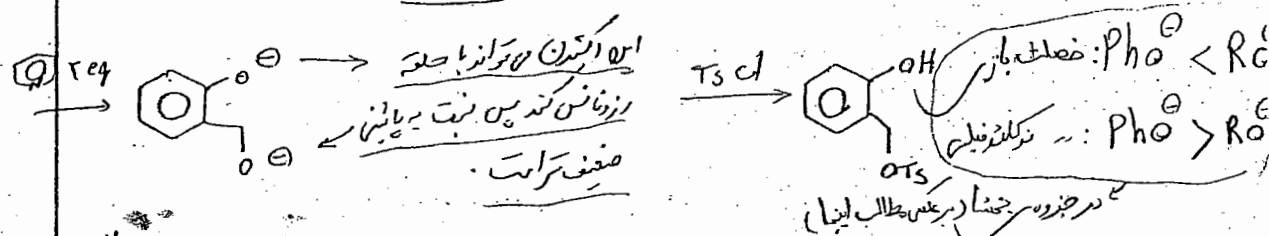 ۲ eq
O ⊖
این اکسیژن می‌تواند با حلقه
رزونانس کند پس نسبت به پائینی
ضعیف‌تر است.
O ⊖
Ts Cl
OH
OTs
خصلت بازی: PhO⊖ < RO
نوکلئوفیلی: PhO⊖ > RO⊖
در جزوه (برعکس مطالب اینجا)